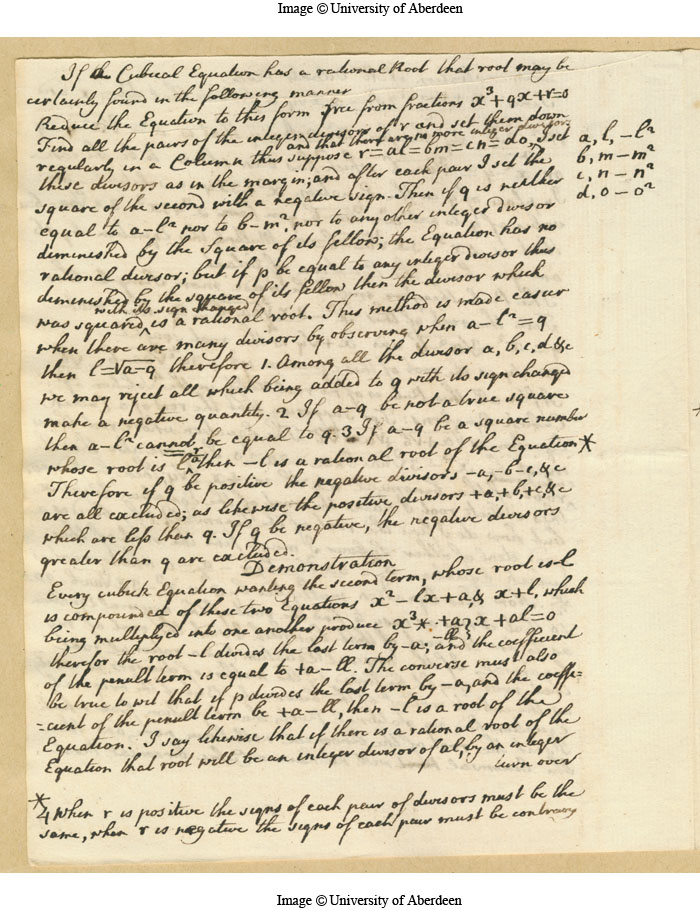 Image © University of Aberdeen
If the Cubical Equation has a rational Root that root may be
certainly found in the following manner
Reduce the Equation to this form free from fractions x³+qx+r=0
Find all the pairs of the integer divisors of r and set them down
and that there are no more integer divisors
regularly in a Column thus suppose r=al=bm=cn=do, I set
these divisors as in the margin; and after each pair I set the
square of the second with a negative sign. Then if q is neither
equal to a-l² nor to b-m², nor to any other integer divisor
diminished by the Square of its fellow; the Equation has no
rational divisor; but if p be equal to any integer divisor thus
diminished by the square of its fellow then the divisor which
with its sign changed
was squared ^ is a rational root. This method is made easier
when there are many divisors by observing when a-l²=q
then l=√a-q therefore 1. Among all the divisor a, b, c, d &c
we may reject all which being added to q with its sign changed
make a negative quantity. 2 If a-q be not a true square
then a-l² cannot be equal to q. 3 If a-q be a square number
whose root is l then -l is a rational root of the Equation *
Therefore if q be positive the negative divisors -a, -b -c, &c
are all excluded; as likewise the positive divisors +a, +b, +c, &c
which are less than q. If q be negative, the negative divisors
greater than q are excluded.
a, l, -l²
b, m -m²
c, n -n²
d, o -o²
Demonstration
Every cubick Equation wanting the second term, whose root is -l
is compounded of these two Equations x²-lx+a, & x+l, which
being multiplyed into one another produce x³ * +a } x + al=0
-ll
therefor the root -l divides the last term by -a; and the coefficient
of the penult term is equal to +a-ll. The converse must also
be true to wit that if p divides the last term by -a, and the coeffe=
=cient of the penult term be +a-ll, then -l is a root of the
Equation. I say likewise that if there is a rational root of the
Equation that root will be an integer divisor of al, by an integer
turn over
* 4 When r is positive the signs of each pair of divisors must be the
same, when r is negative the signs of each pair must be contrary
Image © University of Aberdeen